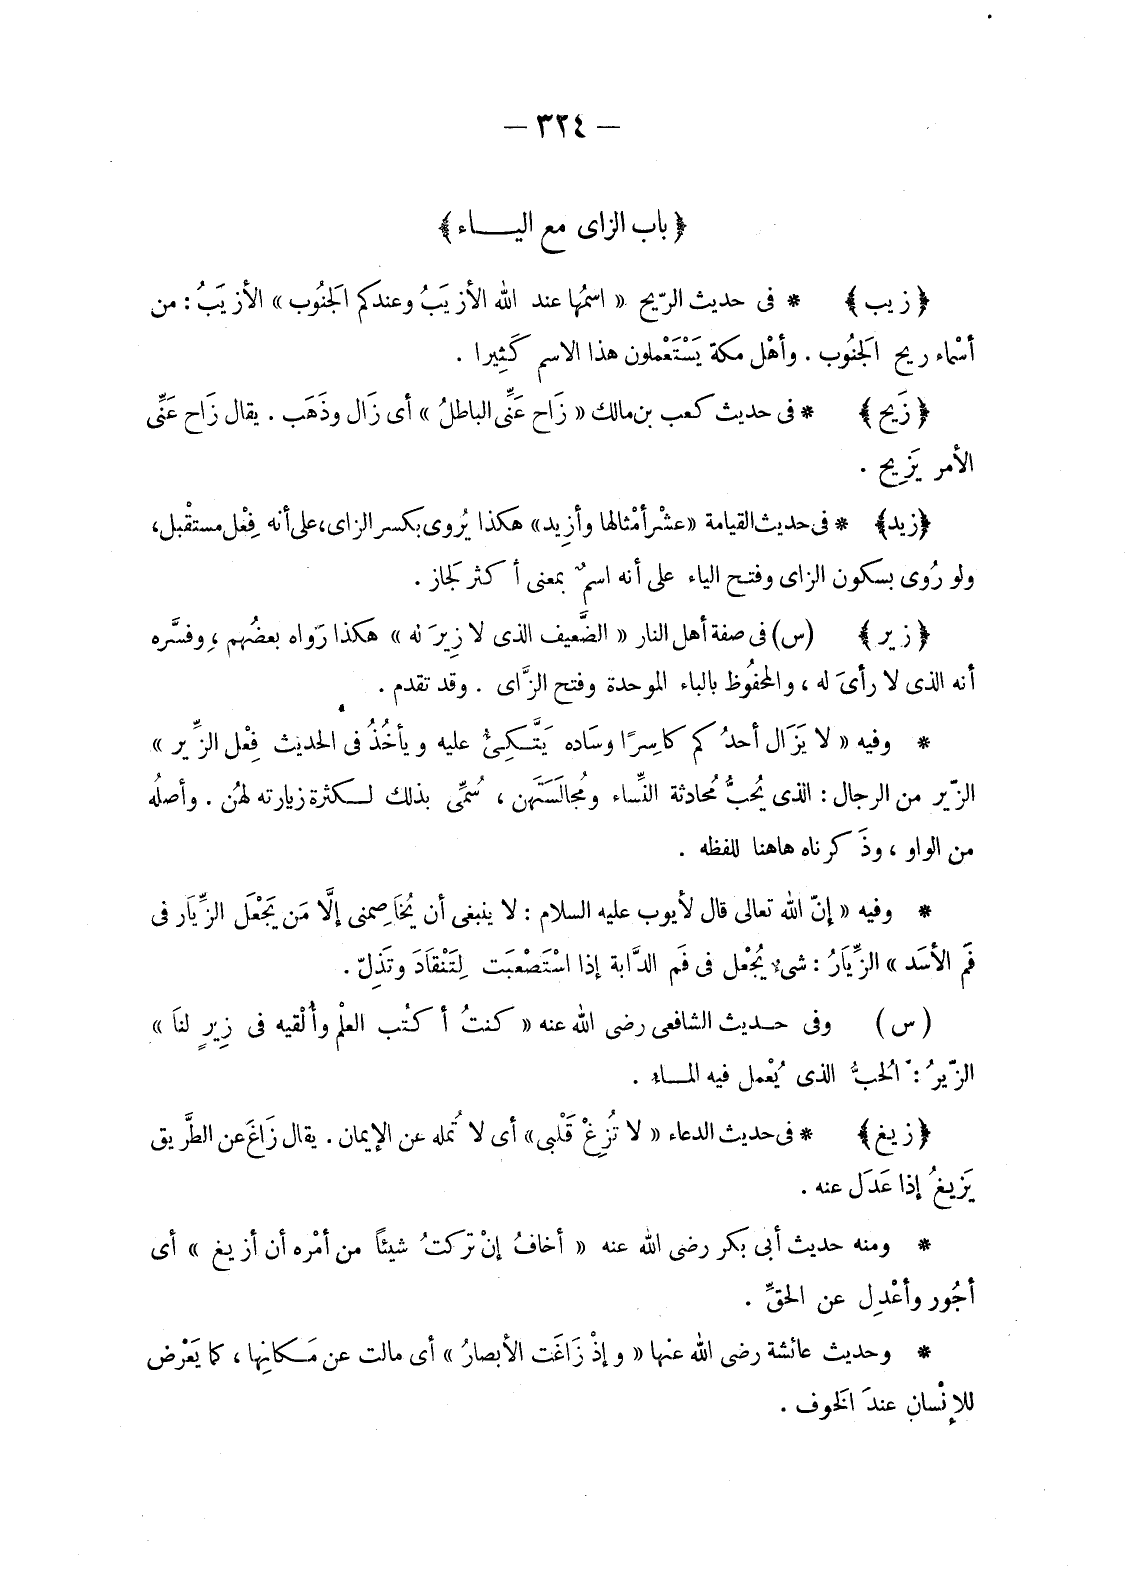 — ٣٢٤ —
﴿ باب الزاى مع اليـــاء ﴾
﴿ زيب ﴾ * فى حديث الرّيح « اسمُها عند الله الأزيَبُ وعندكم الجَنُوب » الأزيَبُ : من
أسْماء ريح الجَنُوب . وأهْل مكة يَسْتَعْملون هذا الاسم كَثِيرا .
﴿ زَيح ﴾ * فى حديث كعب بن مالك « زَاح عَنِّى الباطلُ » أى زَال وذَهَب . يقال زَاح عَنِّى
الأمر يَزِيح .
﴿ زيد ﴾ * فى حديث القيامة « عشْر أمْثالها وأزِيد » هكذا يُروى بكسر الزاى، على أنه فِعْل مستقْبل،
ولو رُوى بسكون الزاى وفتح الياء على أنه اسمٌ بمعنى أكثر لجَاز .
﴿ زير ﴾ (س) فى صفة أهل النار « الضَّعيف الذى لا زِيرَ له » هكذا رَواه بعضُهم ، وفسَّره
أنه الذى لا رأىَ له ، والمحْفُوظ بالباء الموحدة وفتح الزَّاى . وقد تقدم .
* وفيه « لا يَزَال أحدُكم كاسِرًا وسَاده يَتَّـكِئُ عليه ويأخُذُ فى الحديث فِعْل الزِّير »
الزّير من الرجال : الذى يُحبُّ مُحادثة النِّساء ومُجالَسَتَهن ، سُمِّى بذلك لـكثرة زيارته لهُن . وأصلُه
من الواو ، وذَكرناه هاهنا للفظه .
* وفيه « إنّ الله تعالى قال لأيوب عليه السلام : لا ينبغى أن يُخَاصِمنى إلَّا مَن يَجْعَل الزِّيَار فى
فَم الأسَد » الزِّيَارُ : شىء يُجْعل فى فَم الدَّابة إذا اسْتَصْعَبَت لِتَنْقَادَ وتَذِلّ .
( س ) وفى حـديث الشافعى رضى الله عنه « كنتُ أكتُب العلْم وأُلْقيه فى زِيرٍ لنَا »
الزّيرُ : الحُبُّ الذى يُعْمل فيه المـاء .
﴿ زيغ ﴾ * فى حديث الدعاء « لا تُزِغْ قَلْبى » أى لا تُمله عن الإيمان . يقال زَاغَ عن الطَّريق
يَزيغُ إذا عَدَل عنه .
* ومنه حديث أبى بكر رضى الله عنه « أخافُ إنْ تركتُ شيئاً من أمْره أن أزيغ » أى
أجُور وأعْدِل عن الحَقِّ .
* وحديث عائشة رضى الله عنها « وإذْ زَاغَت الأبصارُ » أى مالت عن مَـكانِها ، كما يَعْرض
للإنْسانِ عندَ الخَوف .